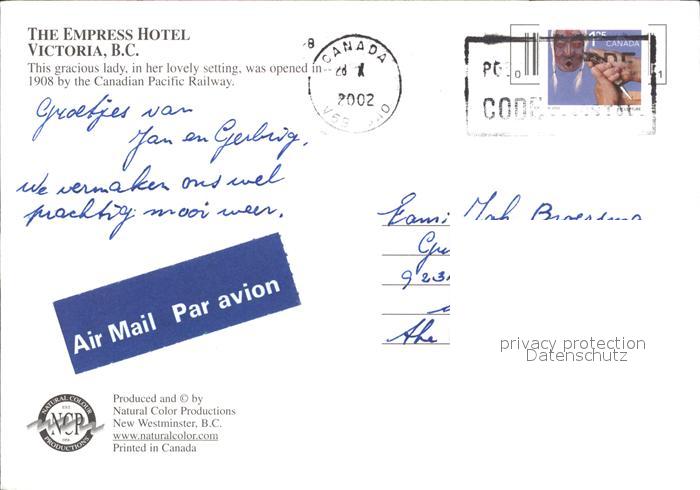 THE EMPRESS HOTEL
VICTORIA, B.C.
This gracious lady, in her lovely setting, was opened in
1908 by the Canadian Pacific Railway.
CANADA
2002
1.25
CANADA
0
1
Groetjes van
Jan en Gerbrig.
We vermaken ons wel
prachtig mooi weer.
Fam:
Gr
923
Air Mail Par avion
privacy protection
Datenschutz
NATURAL COLOUR
EST
NCP
PRODUCTIONS
Produced and © by
Natural Color Productions
New Westminster, B.C.
www.naturalcolor.com
Printed in Canada